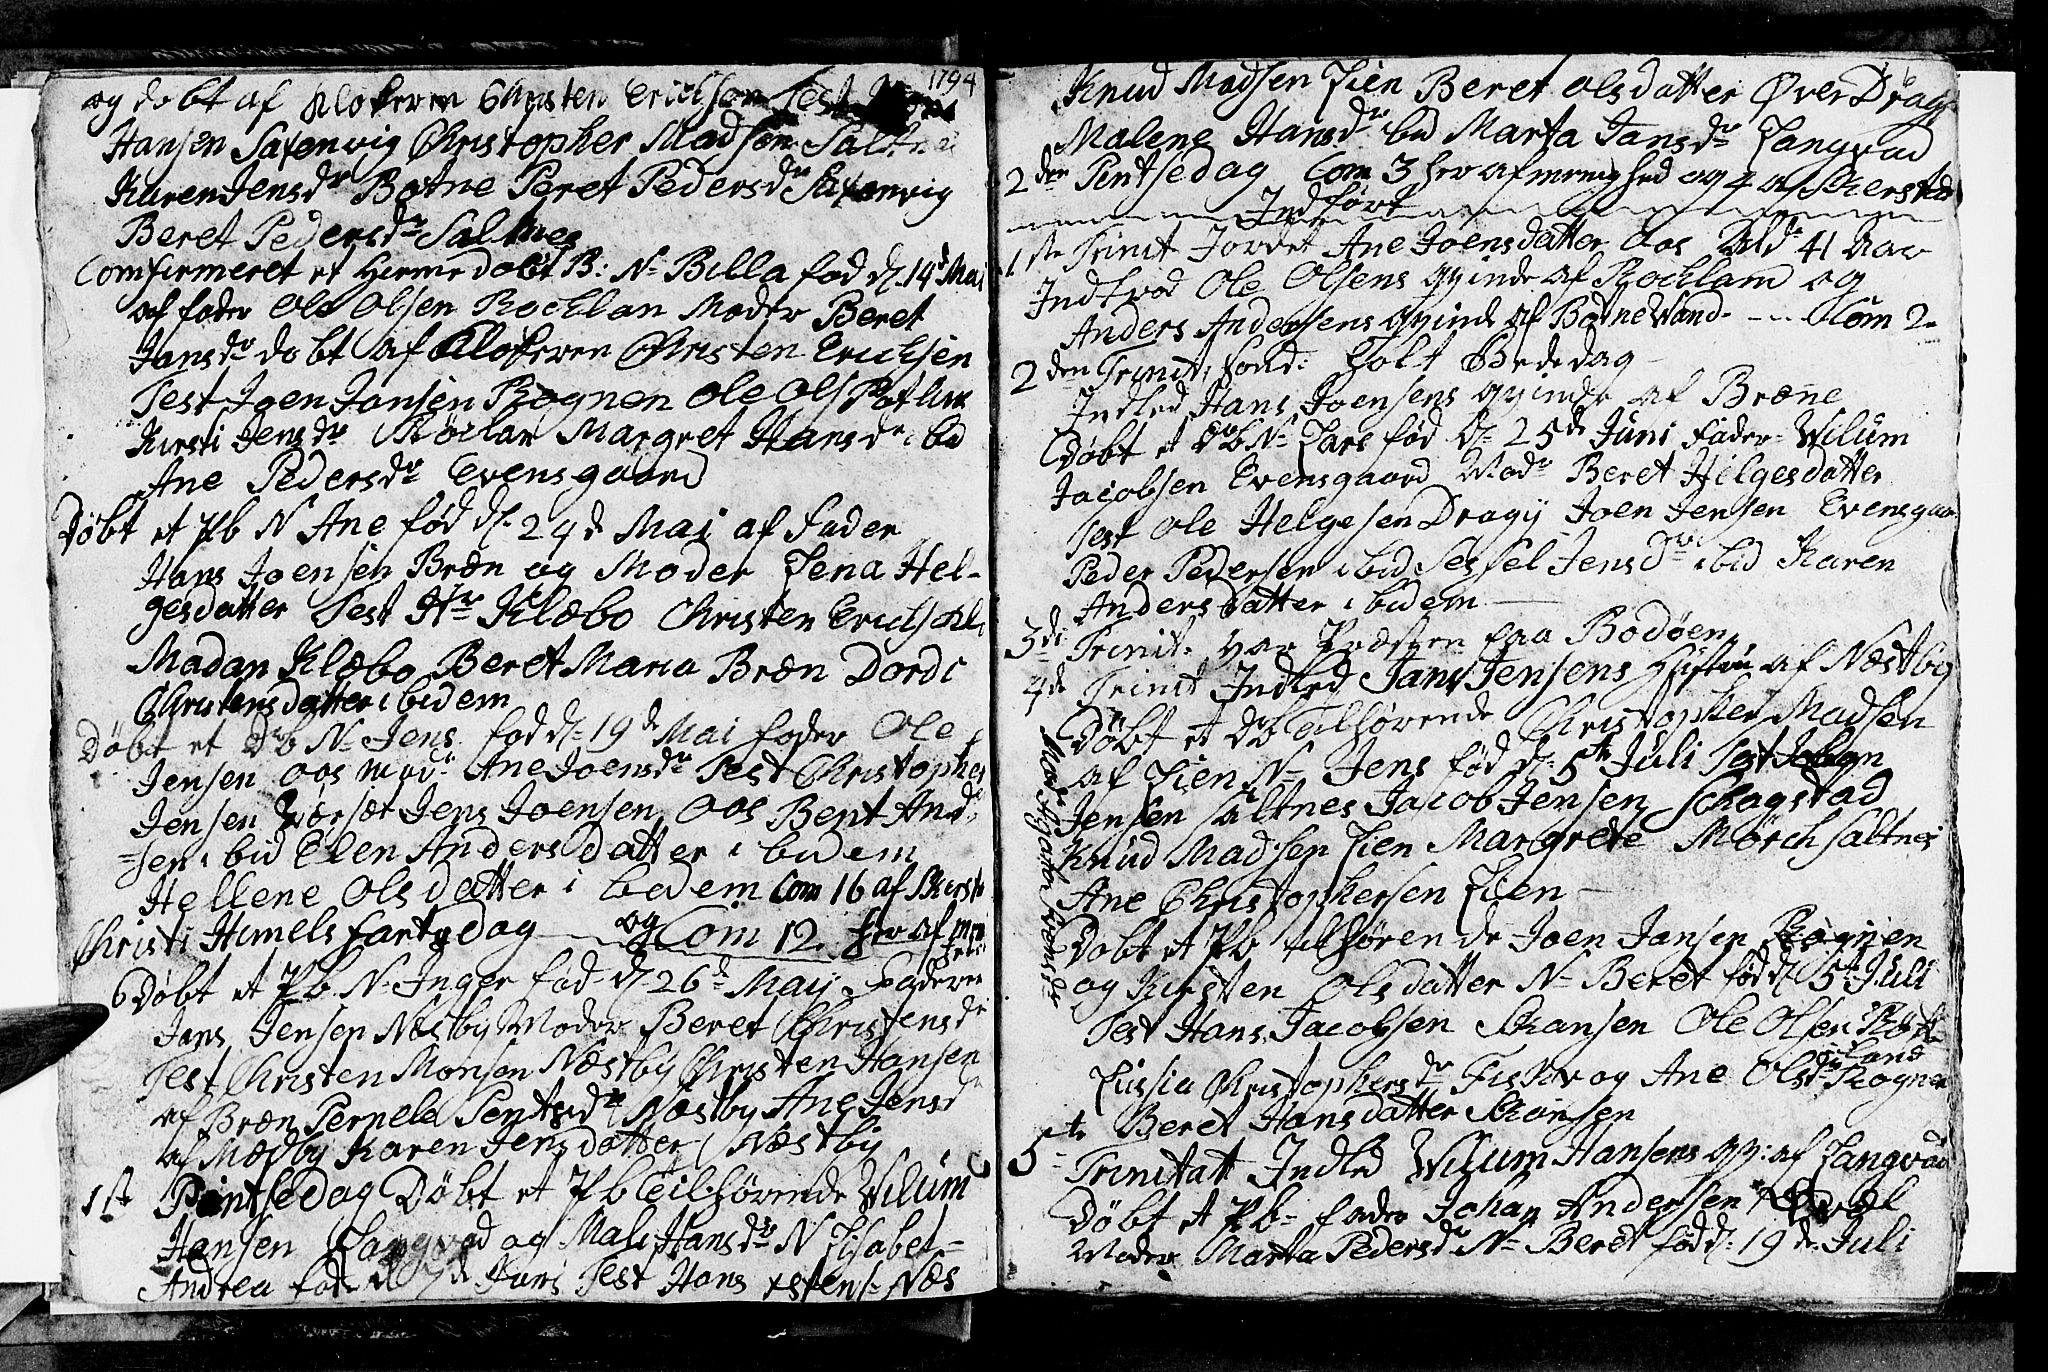 1794
og døbt af Klokeren Christen Erichsen Test
Hansen Saxenvig Christopher Madsen Saltnes
Karen Jensdr Botne Peret Pedersdr Saxenvig
Beret Pedersdr Saltnes
Comfirmeret et Hiemedøbt B: N= Billa fød d/ 14d Mai
af fader Ole Olsen Rochlan Moder Beret
Jansdr døbt af Klokeren Christen Erichsen
Test Joen Jansen Rognen Ole Ols
Kirsti Jensdr Røclan Margret Hansdr ibid
Ane Pedersdr Evensgaard
Døbt et Pb N Ane fød d/ 24d Mai af Fader
Hans Joensen Bræn og Moder Lena Hel-
gesdatter Test Hr Klæbo Christen Erichs
Madan Klæbo Beret Maria Bræn Dordi
Christensdatter ibidem
Døbt et Drb N= Jens fød d/ 19d Mai fader Ole
Jensen Aos Mod: Ane Joensdr Test Christopher
Jensen Jens Joensen Aos Bent And:
=sen ibid Elen Andersdatter ibidem
Hellene Olsdatter ibidem Com 16 af Skierst
Christi Himelsfartsdag og Com 12 her af
Døbt et Pb N= Inger fød d/ 26d Maij Faderen
Jans Jensen Næstby Moder Beret Christensdr
Test Christen Monsen Næstby Christen Hansen
af Bræn Pernele Pentsdr Næstby Ane Jensdr
af Mæsby Karen Jensdatter Næstby
1st Pintsedag Døbt et Pb tilhørende Wilum
Hansen Langvad og Mali Hansdr N Lisabel=
Andrea fød d 7de Juni Test Hans Næs
Knud Madsen Lien Beret Olsdatter Øver Dragij
Malene Hansdr ibid Marta Jansdr Langvad
2den Pintsedag Com 3 her af menighed og 4 af Skierstad
Indført
1ste Trinit Jordet Ane Joensdatter Aos 41 Aar
Indlved Ole Olsens qvinde af Rochlam og
Anders Andersens qvinde af Botne Vand - - Com 2
2den Trinit, sønd: holt Bededag
Indled Hans Joensens qvinde af Bræne
Døbt et Drb N= Lars fød d/ 25de Juni Fader Wilum
Jacobsen Evensgaard Modr Beret Hilgesdatter
Test Ole Helgesen Dragij Joen Jensen Evensgaar
Peder Pedersen ibid Sessel Jensdr ibid Karen
Andersdatter ibidem
3die Trinit. var Præsten paa Bodøen
4de Trinit Indled Jans Jensens Hustru af Næstby
Døbt et Db tilhørende Christopher Madsen
af Lien N= Jens fød d/ 5te Juli Test Johan
Jensen Saltnes Jacob Jensen Skagstad
Knud Madsen Lien Margrete Mørch Saltnes
Ane Christophersen Lien
Døbt et Pb tilhørende Joen Jansen Rognen
og Kirsten Olsdatter N= Beret fød d/ 5te Juli
Test Hans Jacobsen Skansen Ole Olsen Røk
land
Lussia Christophersdr og Ane Olsdr Rognen
Beret Hansdatter Skansen
5te Trinitatt Indled Wilum Hansens qv: af Langvad
Døbt et Pb= fader Johan Andersen
Moder Marta Pedersdr N= Beret fød d/ 19de Juli